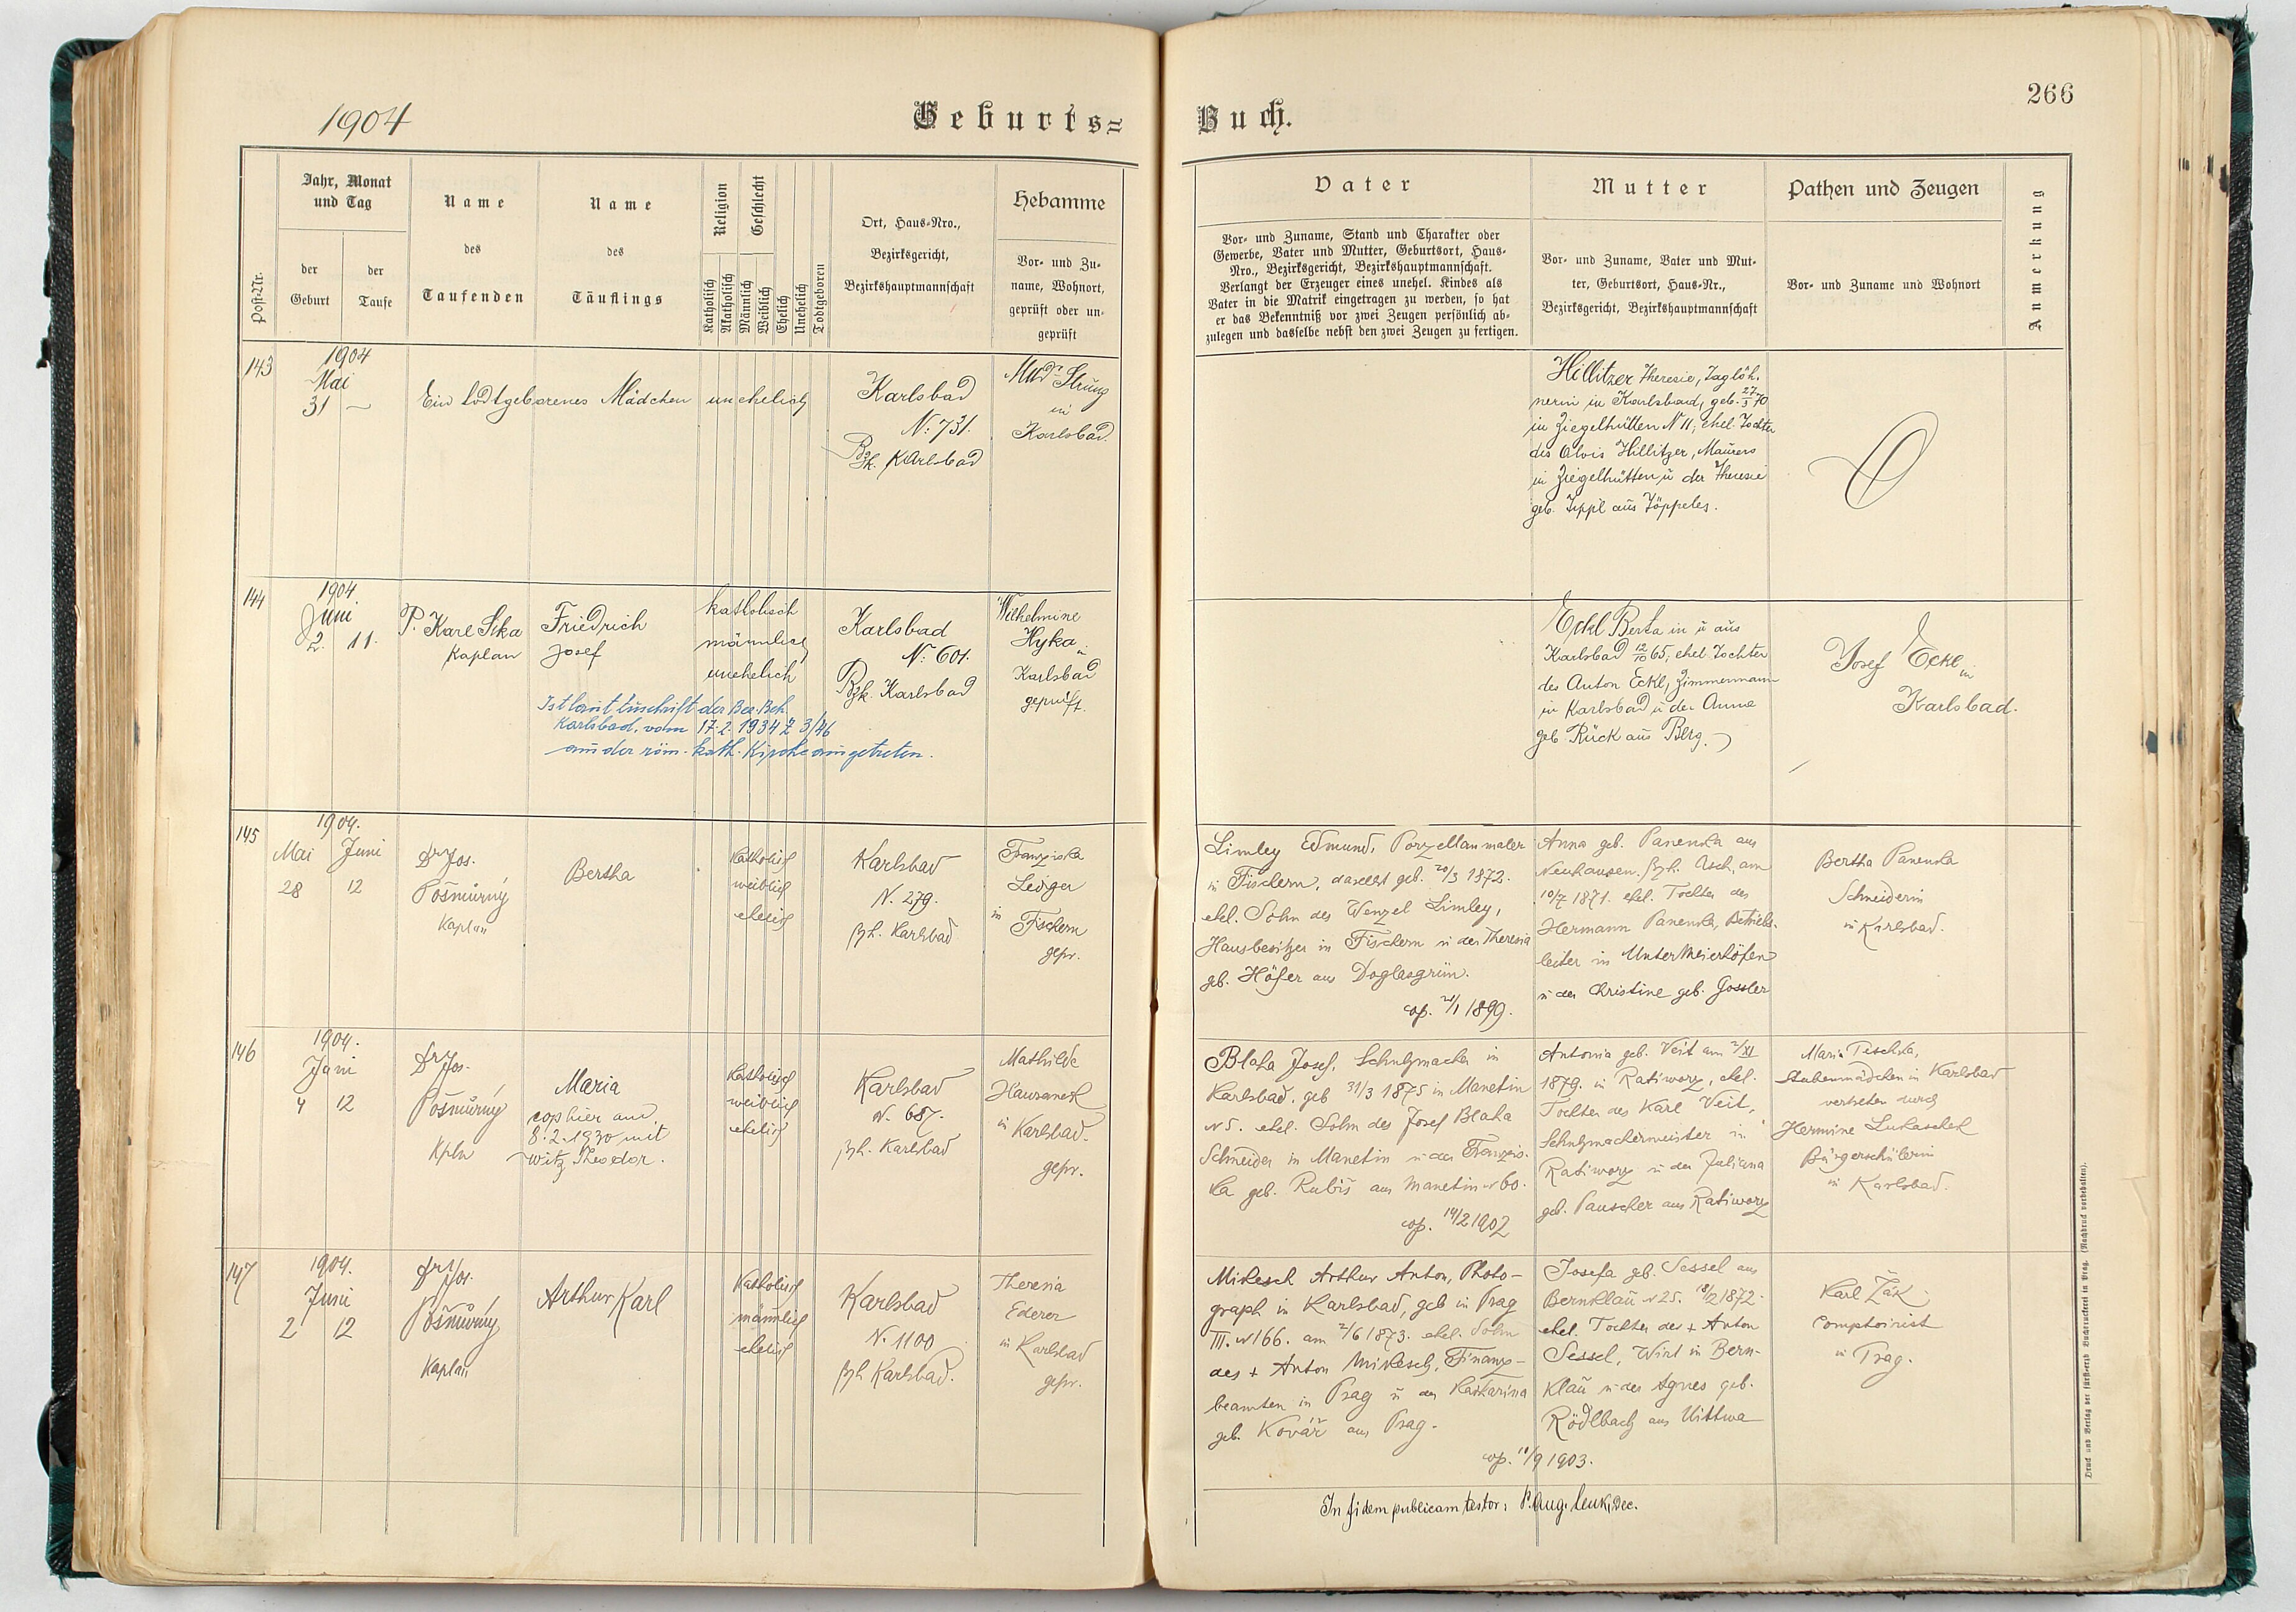 1904
Geburts=
Buch.
266
Post-Nr.
Jahr, Monat
und Tag
der
Geburt
der
Taufe
Name
des
Taufenden
Name
des
Täuflings
Religion
Geschlecht
Katholisch
Akatholisch
Männlich
Weiblich
Ehelich
Unehelich
Todtgeboren
Ort, Haus-Nro.,
Bezirksgericht,
Bezirkshauptmannschaft
Hebamme
Vor- und Zu-
name, Wohnort,
geprüft oder un-
geprüft
Vater
Vor- und Zuname, Stand und Charakter oder
Gewerbe, Vater und Mutter, Geburtsort, Haus-
Nro., Bezirksgericht, Bezirkshauptmannschaft.
Verlangt der Erzeuger eines unehel. Kindes als
Vater in die Matrik eingetragen zu werden, so hat
er das Bekenntniß vor zwei Zeugen persönlich ab-
zulegen und dasselbe nebst den zwei Zeugen zu fertigen.
Mutter
Vor- und Zuname, Vater und Mut-
ter, Geburtsort, Haus-Nr.,
Bezirksgericht, Bezirkshauptmannschaft
Pathen und Zeugen
Vor- und Zuname und Wohnort
Anmerkung
143
1904
Mai
31 —
Ein todtgeborenes Mädchen unehelich
Karlsbad
N: 731.
Bzk. Karlsbad
in
Karlsbad.
Hillitzer Theresie, Taglöh-
nerin in Karlsbad, geb. 27/3 70
in Ziegelhütten N 11, ehel. Tochter
des Alois Hillitzer, Maurers
in Ziegelhütten u der Theresie
geb. Zippl aus Töppeles.
144
1904
Juni
2. 11.
P. Karl Sika
Kaplan
Friedrich
Josef
katholisch
männlich
unehelich
Karlsbad
N: 601.
Bzk. Karlsbad
Wilhelmine
Hyka in
Karlsbad
geprüft.
Ist laut Zuschrift der Bez. Beh.
Karlsbad, vom 17.2.1934 Z 3/46
aus der röm.-kath. Kirche ausgetreten.
Eckl Berta in u aus
Karlsbad 12/10 65, ehel. Tochter
des Anton Eckl, Zimmermann
in Karlsbad u der Anna
geb. Rück aus Berg.
Josef Eckl in
Karlsbad.
145
1904.
Mai Juni
28 12
Dr Jos.
Pošmůrný
Kaplan
Bertha
Katholisch
weiblich
ehelich
Karlsbad
N. 279.
Bzh. Karlsbad
Franziska
Ledger
in Fischern
gepr.
Limley Edmund, Porzellanmaler
in Fischern, daselbst geb. 20/3 1872.
ehel. Sohn des Wenzel Limley,
Hausbesitzer in Fischern u der Theresia
geb. Höfer aus Doglasgrün.
cop. 21/1 1899.
Anna geb. Panenka aus
Neuhausen, Bzh. Asch, am
10/7 1871. ehel. Tochter des
Hermann Panenka, Betriebs-
leiter in Untermeierhöfen
u der Christine geb. Gossler
Bertha Panenka
Schneiderin
in Karlsbad.
146
1904.
Juni
4 12
Dr Jos.
Pošmůrný
Kpln
Maria
8.2.1930 mit
Witz Theodor.
Katholisch
weiblich
ehelich
Karlsbad
N. 687.
Bzh. Karlsbad
Mathilde
in Karlsbad.
gepr.
Blaha Josef, Schuhmacher in
Karlsbad, geb 31/3 1875 in Manetin
N 5. ehel. Sohn des Josef Blaha
Schneider in Manetin u der Franzis-
ka geb. Rubiš aus Manetin N 60.
cop. 14/2 1902
Antonia geb. Veit am 2/XI
1879. in Ratiworz, ehel.
Tochter des Karl Veit,
Schuhmachermeister in
Ratiworz u der Juliana
geb. Pauscher aus Ratiworz
Maria Peschka,
Stubenmädchen in Karlsbad
vertreten durch
Hermine Lukaschek
Bürgerschülerin
in Karlsbad.
147
1904.
Juni
2 12
Dr Jos.
Pošmůrný
Kaplan
Arthur Karl
Katholisch
männlich
ehelich
Karlsbad
N. 1100
Bzh Karlsbad.
Theresia
Ederer
in Karlsbad
gepr.
Mikesch Arthur Anton, Photo-
graph in Karlsbad, geb in Prag
III. N 166. am 2/6 1873. ehel. Sohn
des + Anton Mikesch, Finanz-
beamten in Prag u der Katharina
geb. Kovář aus Prag.
cop. 10/9 1903.
Josefa geb. Sessel aus
Bernklau N 25. 18/2 1872.
ehel. Tochter des + Anton
Sessel, Wirt in Bern-
klau u der Agnes geb.
Rödlbach aus Uittwa
Karl Žák
Comptoirist
in Prag.
In fidem publicam testor: P. Aug. Leuk, Dec.
Druck und Verlag der fürsterzb Buchdruckerei in Prag. (Nachdruck vorbehalten).